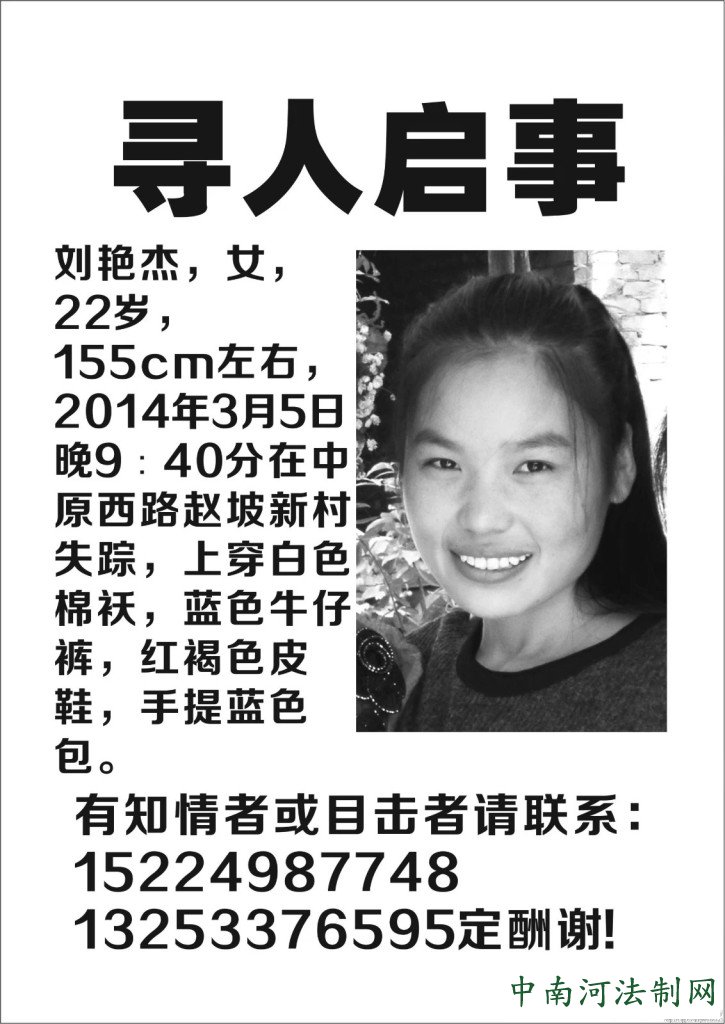 寻人启事
刘艳杰，女，
22岁，
155cm左右，
2014年3月5日
晚9：40分在中
原西路赵坡新村
失踪，上穿白色
棉袄，蓝色牛仔
裤，红褐色皮
鞋，手提蓝色
包。
有知情者或目击者请联系：
15224987748
13253376595定酬谢!
中南河法制网